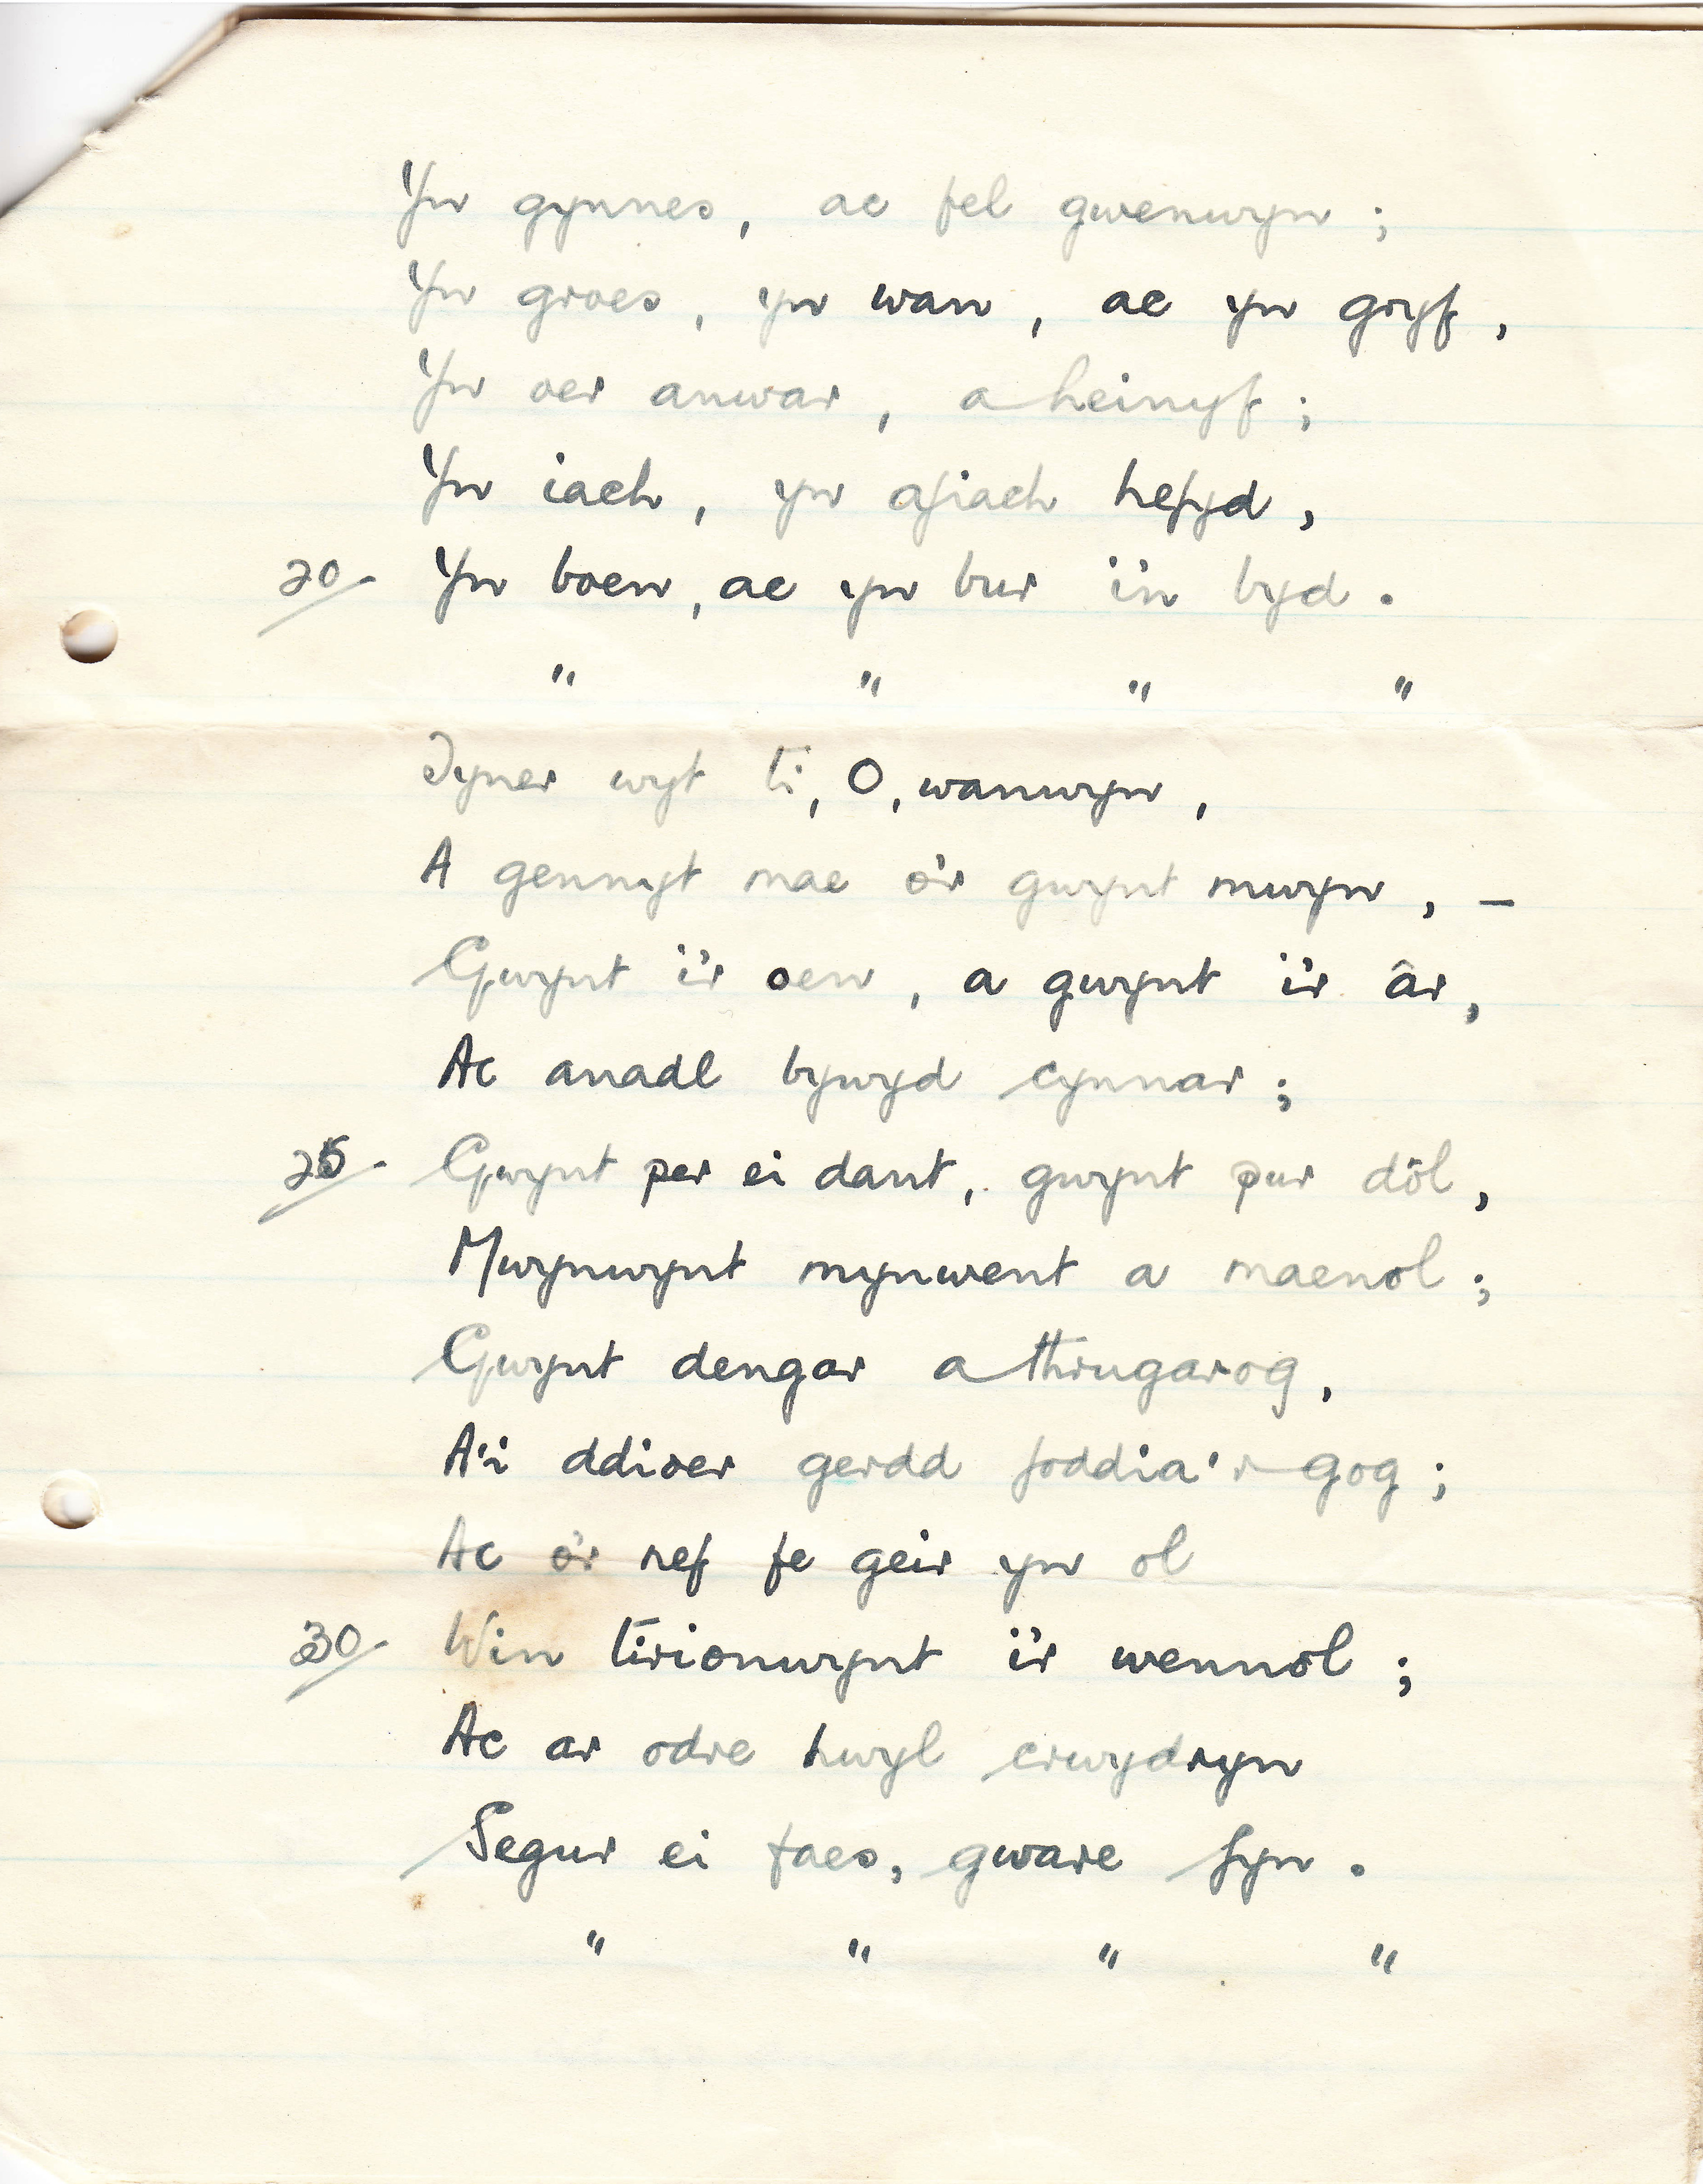 Yn gynnes, ac fel gwenwyn ;
Yn groes, yn wan, ac yn gryf,
Yn oer anwar, a heinyf ;
Yn iach, yn afiach hefyd,
20. Yn boen, ac yn bur i'n byd.
" " " "
Tyner wyt ti, O, wanwyn,
A gennyt mae o'r gwynt mwyn, –
Gwynt i'r oen, a gwynt i'r âr,
Ac anadl bywyd cynnar ;
25. Gwynt per ei dant, gwynt pur dôl,
Mwynwynt mynwent a maenol ;
Gwynt dengar a thrugarog,
A'i ddioer gerdd foddia'r gog ;
Ac o'r nef fe geir yn ol
30. Win tirionwynt i'r wennol ;
Ac ar odre hwyl crwydryn
Segur ei faes, gware fyn.
" " " "